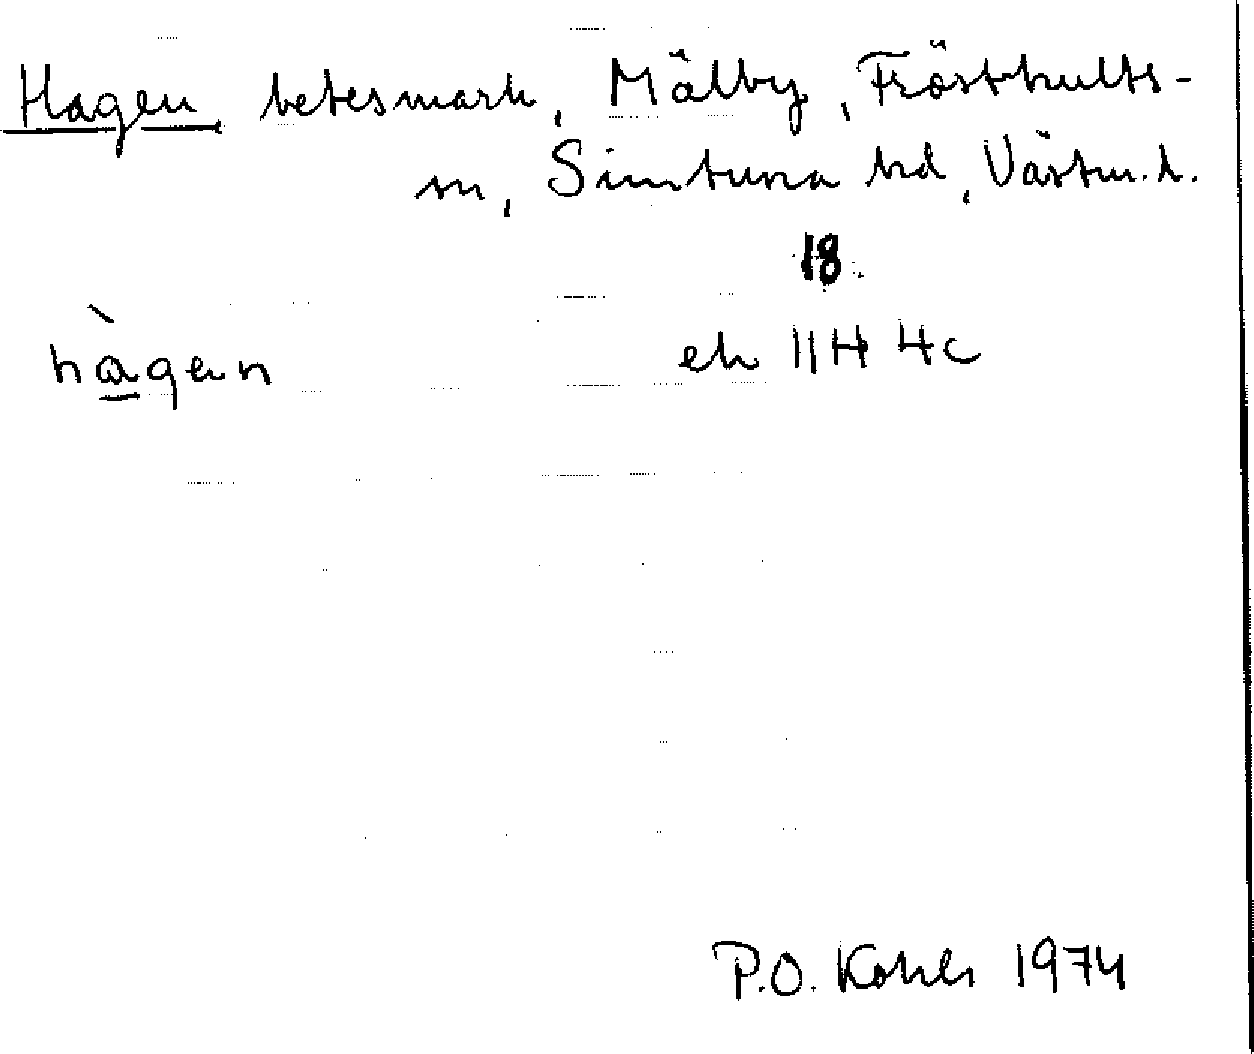 Hagen betesmark, Mälby, Frösthults-
sn, Simtuna hd, Västm.l.
18
hàgen ek 11H 4c
P.O. 1974